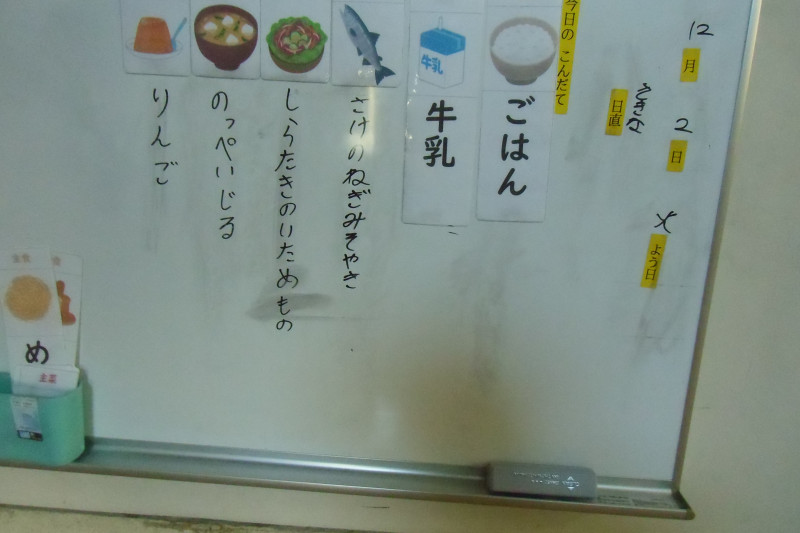 12月
2日
火よう日
日直
今日の こんだて
ごはん
牛乳
牛乳
さけのねぎみそやき
しらたきのいためもの
のっぺいじる
りんご
め
主菜